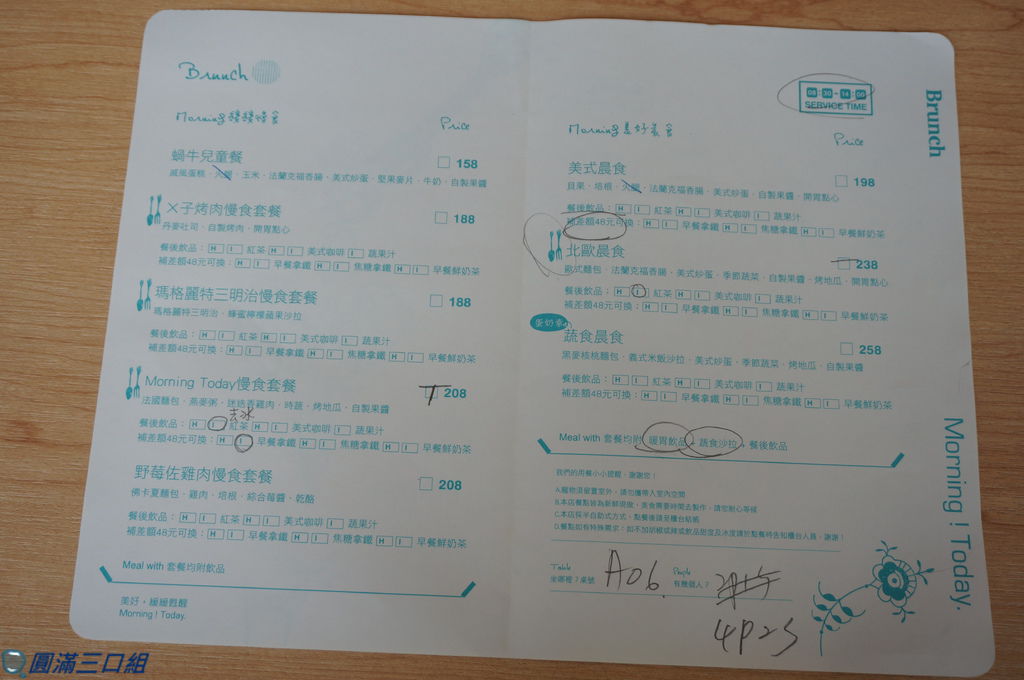 Brunch
Morning慢慢慢食
Price
蝸牛兒童餐
158
戚風蛋糕、火腿、玉米、法蘭克福香腸、美式炒蛋、堅果麥片、牛奶、自製果醬
ㄨ子烤肉慢食套餐
188
丹麥吐司、自製烤肉、開胃點心
餐後飲品：H I 紅茶 H I 美式咖啡 I 蔬果汁
補差額48元可換：H I 早餐拿鐵 H I 焦糖拿鐵 H I 早餐鮮奶茶
瑪格麗特三明治慢食套餐
188
瑪格麗特三明治、蜂蜜檸檬蘋果沙拉
餐後飲品：H I 紅茶 H I 美式咖啡 I 蔬果汁
補差額48元可換：H I 早餐拿鐵 H I 焦糖拿鐵 H I 早餐鮮奶茶
Morning Today慢食套餐
208
法國麵包、燕麥粥、迷迭香雞肉、時蔬、烤地瓜、自製果醬
去冰
餐後飲品：H I 紅茶 H I 美式咖啡 I 蔬果汁
補差額48元可換：H I 早餐拿鐵 H I 焦糖拿鐵 H I 早餐鮮奶茶
野莓佐雞肉慢食套餐
208
佛卡夏麵包、雞肉、培根、綜合莓醬、乾酪
餐後飲品：H I 紅茶 H I 美式咖啡 I 蔬果汁
補差額48元可換：H I 早餐拿鐵 H I 焦糖拿鐵 H I 早餐鮮奶茶
Meal with 套餐均附飲品
美好，緩緩甦醒
Morning ! Today.
08:30-14:00
SERVICE TIME
Brunch
Morning美好美食
Price
美式晨食
198
貝果、培根、火腿、法蘭克福香腸、美式炒蛋、自製果醬、開胃點心
餐後飲品：H I 紅茶 H I 美式咖啡 I 蔬果汁
補差額48元可換：H I 早餐拿鐵 H I 焦糖拿鐵 H I 早餐鮮奶茶
北歐晨食
238
歐式麵包、法蘭克福香腸、美式炒蛋、季節蔬菜、自製果醬、烤地瓜、開胃點心
餐後飲品：H I 紅茶 H I 美式咖啡 I 蔬果汁
補差額48元可換：H I 早餐拿鐵 H I 焦糖拿鐵 H I 早餐鮮奶茶
蛋奶素
蔬食晨食
258
黑麥核桃麵包、義式米飯沙拉、美式炒蛋、季節蔬菜、烤地瓜、自製果醬
餐後飲品：H I 紅茶 H I 美式咖啡 I 蔬果汁
補差額48元可換：H I 早餐拿鐵 H I 焦糖拿鐵 H I 早餐鮮奶茶
Meal with 套餐均附 暖胃飲品+蔬食沙拉+餐後飲品
我們的用餐小小提醒，謝謝您！
A.寵物須留置室外，請勿攜帶入室內空間
B.本店餐點皆為新鮮現做，美食需要時間去製作，請您耐心等候
C.本店採半自助式方式，點餐後請至櫃台結帳
D.餐點如有特殊需求，如不加胡椒或辣或飲品甜度及冰度請於點餐時告知櫃台人員，謝謝！
Table
坐哪裡？桌號
A06
People
有幾個人？
4P2S
Morning ! Today.
圓滿三口組